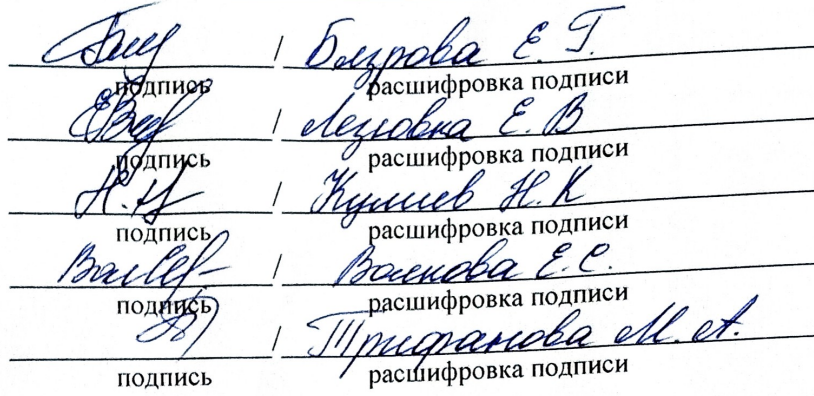 / Бязрова Е. Г.
подпись расшифровка подписи
/ Е. В
подпись расшифровка подписи
Н. / Кулиев Н. К
подпись расшифровка подписи
/ Волкова Е. С.
подпись расшифровка подписи
/ Трифанова М. А.
подпись расшифровка подписи